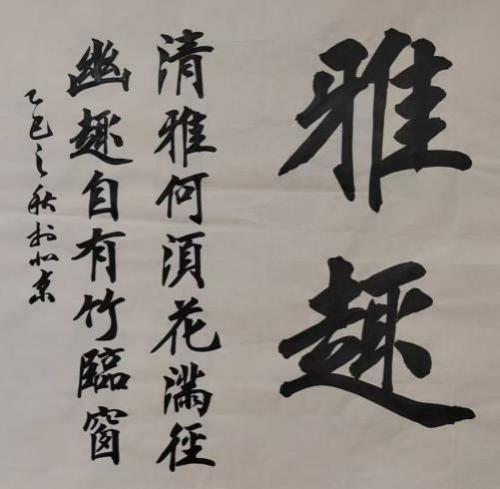 雅趣
清雅何須花滿徑
幽趣自有竹臨窗
乙巳之秋於北京